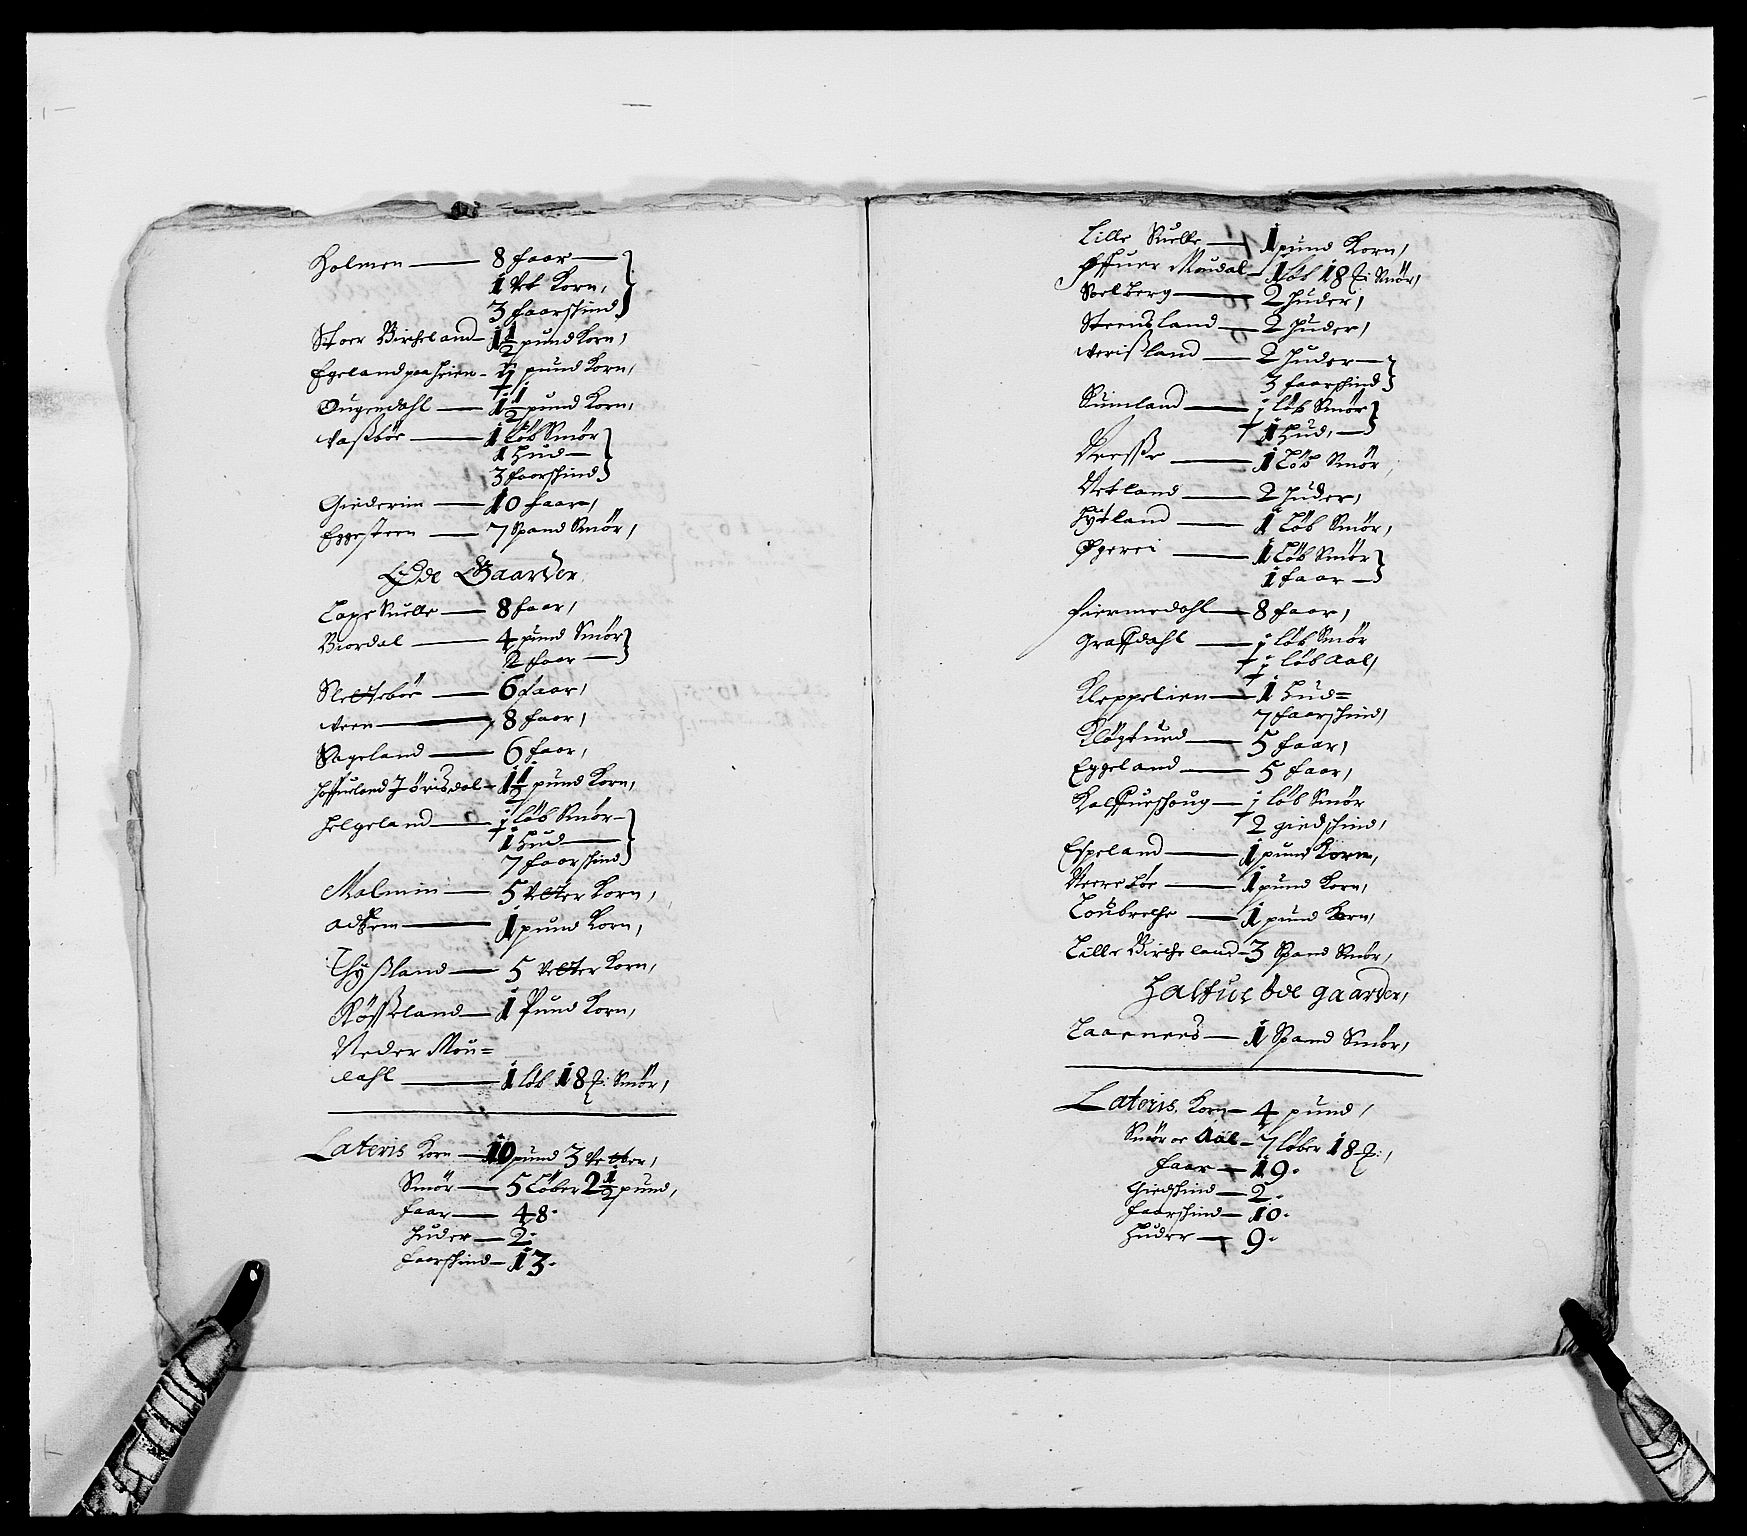 Holmen — 8 faar —
1 Vet Korn,
3 faarskind
Stoer Bircheland — 1 1/2 pund Korn,
Egeland paa heien - 1/2 pund Korn,
Ougendahl — 1 1/2 pund Korn,
Vasbøe — 1 Løb Smør
1 Hud —
3 faarskind
Giederim — 10 faar,
Eggesteen — 7 Spand Smør,
Øde Gaarder,
Lage Suelle — 8 faar,
Biordal — 4 pund Smør
2 faar —
Slettebøe — 6 faar,
Veen — 8 faar,
Sageland — 6 faar,
Høffueland Jørisdal - 1 1/2 pund Korn,
Helgeland — 1/2 løb Smør -
1 Hud —
7 faarskind
Malmin — 5 Vetter Korn,
Ads‍em — 1 pund Korn,
Thysland — 5 Vetter Korn,
Røsseland — 1 Pund Korn,
Neder Mou=
dahl — 1 løb 18 ℔: Smør,
Lateris Korn — 10 pund 3 Vetter,
Smør — 5 Løber 2 1/2 pund,
faar — 48.
Huder — 2.
faarskind — 13.
Lille Suelle — 1 pund Korn,
Øffuer Moudal - 1 løb 18 ℔: Smør,
Soelberg — 2 Huder,
Steensland — 2 Huder,
Verisland — 2 Huder —
3 faarskind
Suinland — 1/2 løb Smør
1 Hud, —
Neesse — 1 Løb Smør,
Netland — 2 Huder,
Hytland — 1 Løb Smør,
Øgerei — 1 Løb Smør
1 faar —
fiermedahl — 8 faar,
Graffdahl — 1/2 løb Smør
1/2 løb Aal,
Kleppelien — 1/2 Hud =
7 faarskind,
Kløgtued — 5 faar,
Eggeland — 5 faar,
Kalffueshoug — 1/2 løb Smør
2 giedskind,
Espeland — 1 pund Korn,
Neerebøe — 1 pund Korn,
Loubreche — 1 pund Korn,
Lille Bircheland - 3 Spand Smør,
Halfue Øde gaarder,
Laarnees — 1 Spand Smør,
Lateris, Korn — 4 pund,
Smør oc Aal — 7 løber 18 ℔:,
faar — 19.
Giedskind — 2.
faarskind — 10.
Huder — 9.